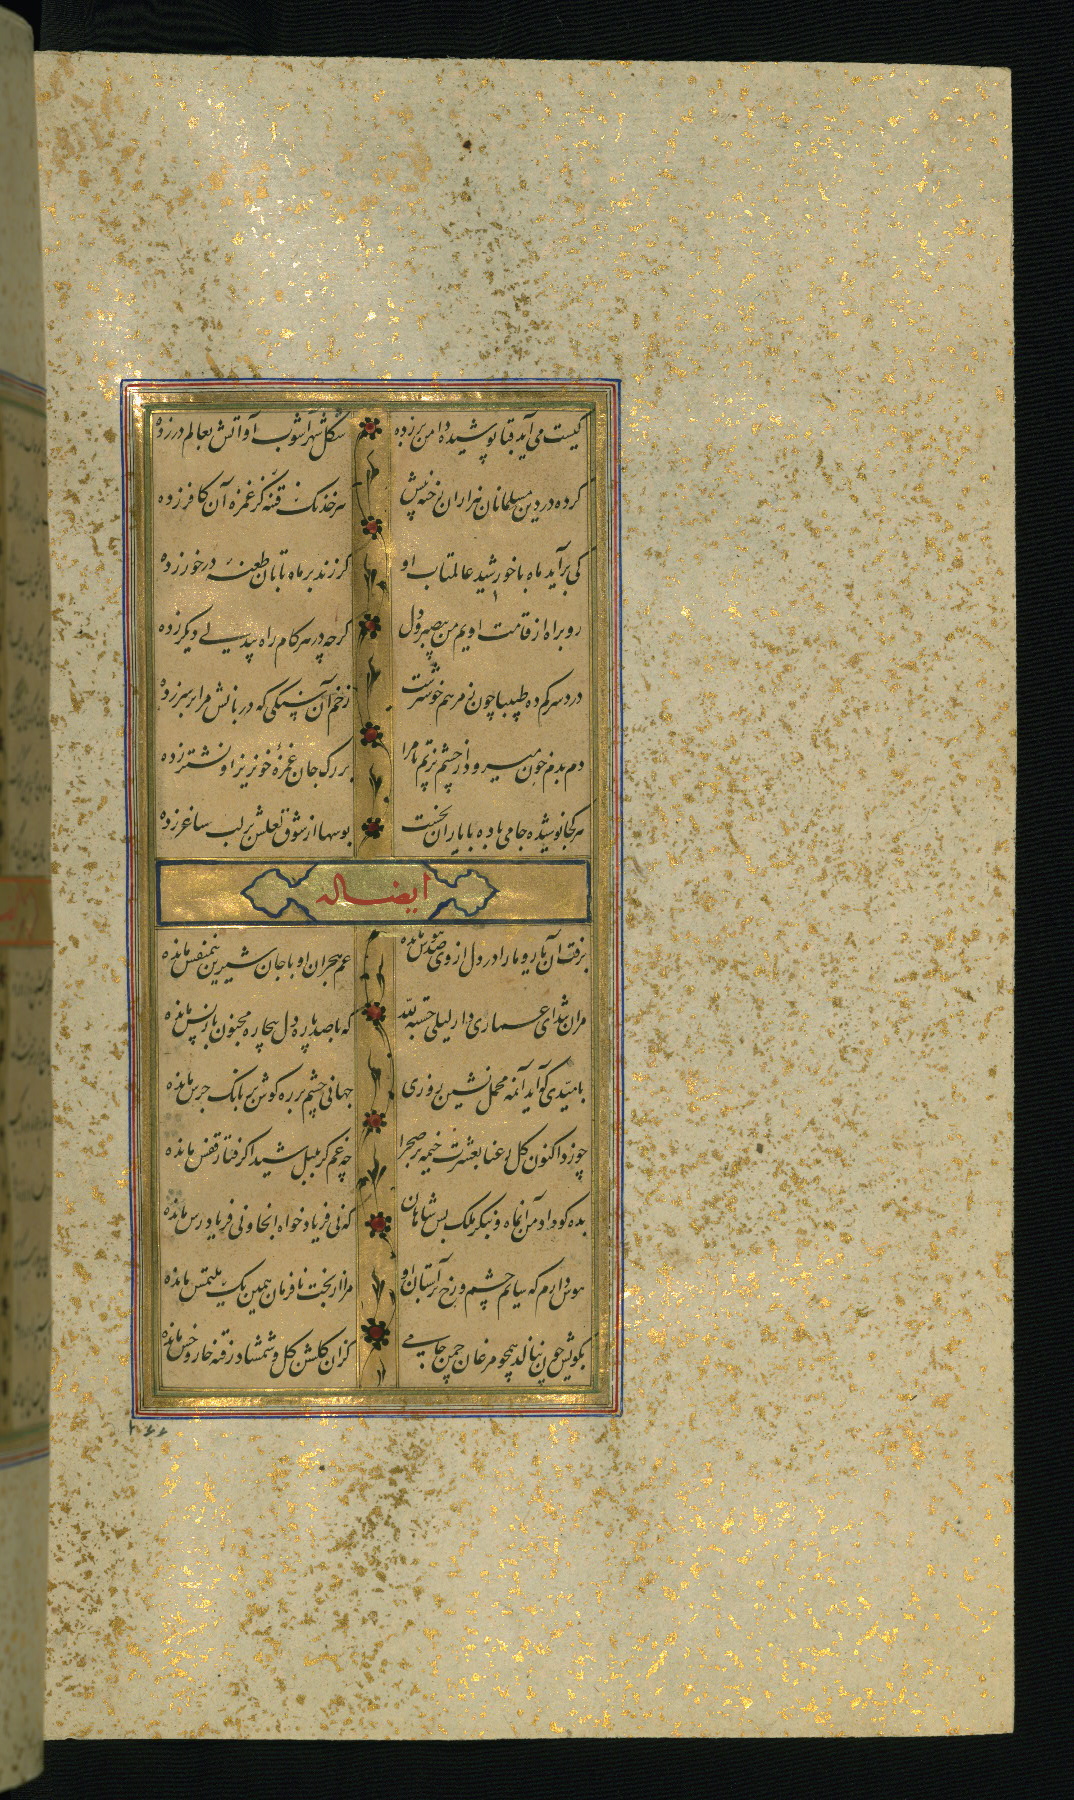 کیست می آید قبا پوشیده دامن برزده شکل شهر آشوب او آتش بعالم در زده
کرده در دین مسلمانان هزاران رخنه پیش هر خدنک فتنه کز غمزه آن کافر زده
کی برآید ماه با خورشید عالمتاب او کر زند بر ماه تابان طعنه در خور زده
رو براه از قامت اویم من بیصبر و دل کرچه در هر کام راه پیدلی دیکر زده
درد سر کم ده طبیبا چون ز مرهم خوشترست زخم آن سنکی که دربانش مرا بر سر زده
دم بدم خون میرود از چشم تر تا مرا بر رک جان غمزه خونریز او نشتر زده
هر کجا نوشیده جامی باده با یاران نخست بوسها از شوق لعلش بر لب ساغر زده
ایضا له
برفت آن ماه رو ما را در دل از وی صد هوس مانده غم هجران او با جان شیرین همنفس مانده
مران تند ای عماری دار لیلی حسبة لله که با صد پاره دل بیچاره مجنون باز پس مانده
بامیدی که آید آنمه محمل نشین روزی جهانی چشم بر ره کوش بر بانک جرس مانده
چو زد اکنون کل رعنا بعشرت خیمه بر صحرا چه غم کر بلبل شیدا کرفتار قفس مانده
بده کو داد من آنماه و نیکر ملک بس شاهان که نی فریاد خواه انجا و نی فریادرس مانده
هوس دارم که میمالم چشم و رخ بر آستان او مرا از بخت نافرمان همین یک ملتمس مانده
بکویش چون ننالد همچو مرغان چمن جامی کزان کلشن کل و شمشاد رفته خار و خس مانده